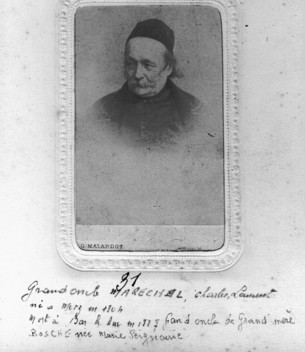 G. MALARDOT
31
Grand oncle MARECHAL, Charles, Laurent
né a en 1804
Mort à Bar le duc en 1887 grand oncle de Grand mère
BOSCHE née Marie